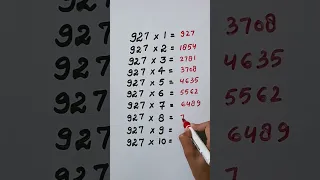 927 × 1 = 927
927 × 2 = 1854
927 × 3 = 2781
927 × 4 = 3708
927 × 5 = 4635
927 × 6 = 5562
927 × 7 = 6489
927 × 8 = 7
927 × 9 =
927 × 10 =
3708
4635
5562
6489